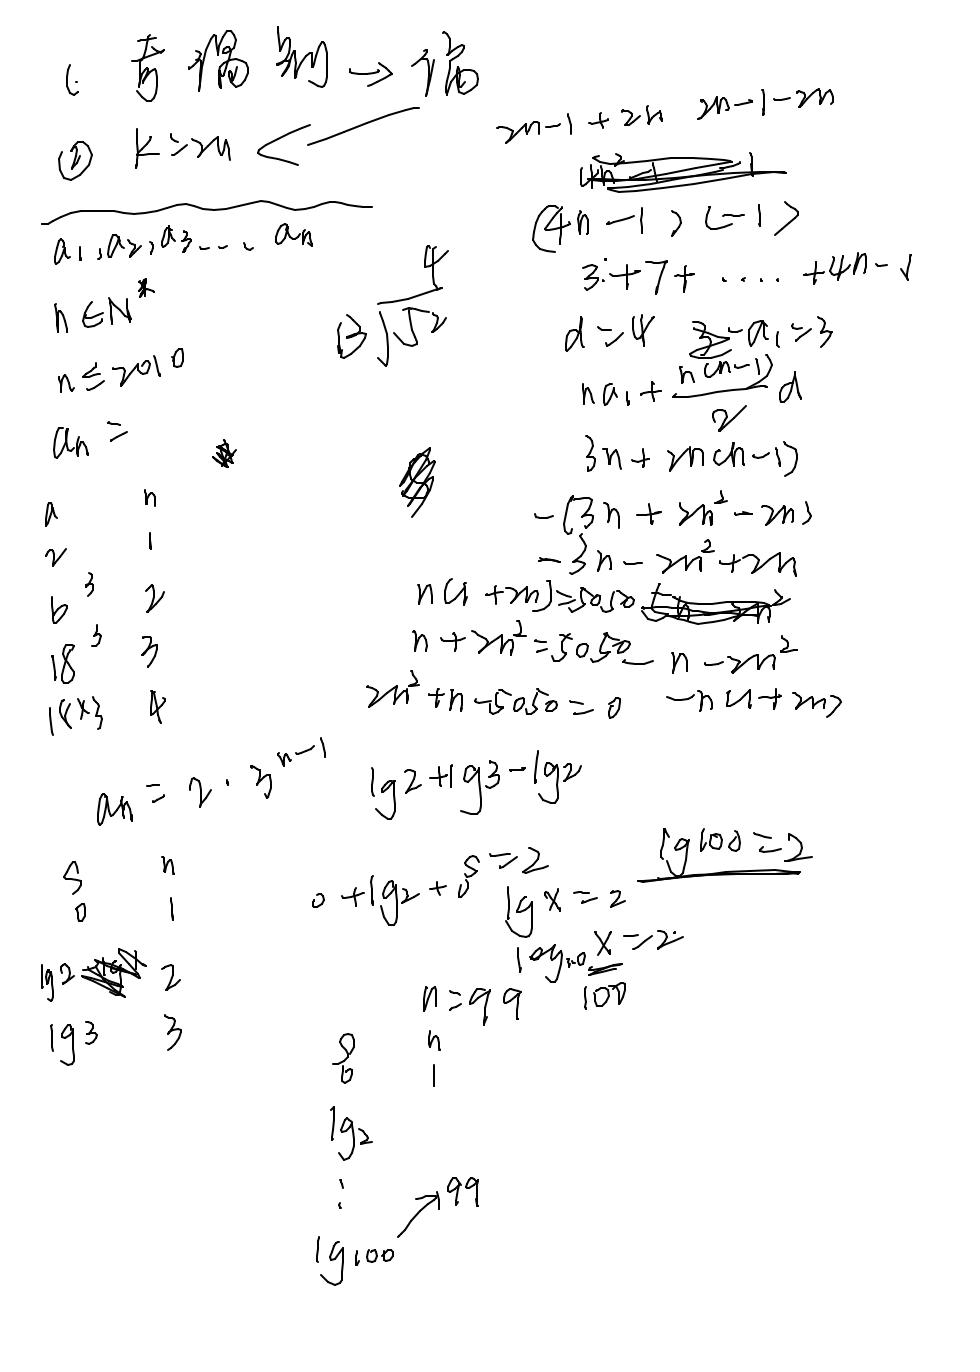 1. 奇偶别 → 偏
② k=2n
a1, a2, a3..., an
n∈N*
n≤2010
an =
a n
2 1
6 3 2
18 3 3
18×3 4
an = 2·3^(n-1)
S n
0 1
lg2 2
lg3 3
4
13√52
2n-1+2n 2n-1-2n
4n²-1 -1
(4n-1)(-1)
3+7+....+4n-1
d=4 3 -a1=3
na1+n(n-1)/2 d
3n+2n(n-1)
-(3n+2n²-2n)
-3n-2n²+2n
n(1+2n)=5050
n+2n²=5050 -n-2n²
2n²+n-5050=0 -n(1+2n)
lg2+lg3-lg2
0+lg2+0 S=2 lg100=2
lgx=2
log10 x=2
n=99 100
S n
0 1
lg2
⋮
lg100 → 99